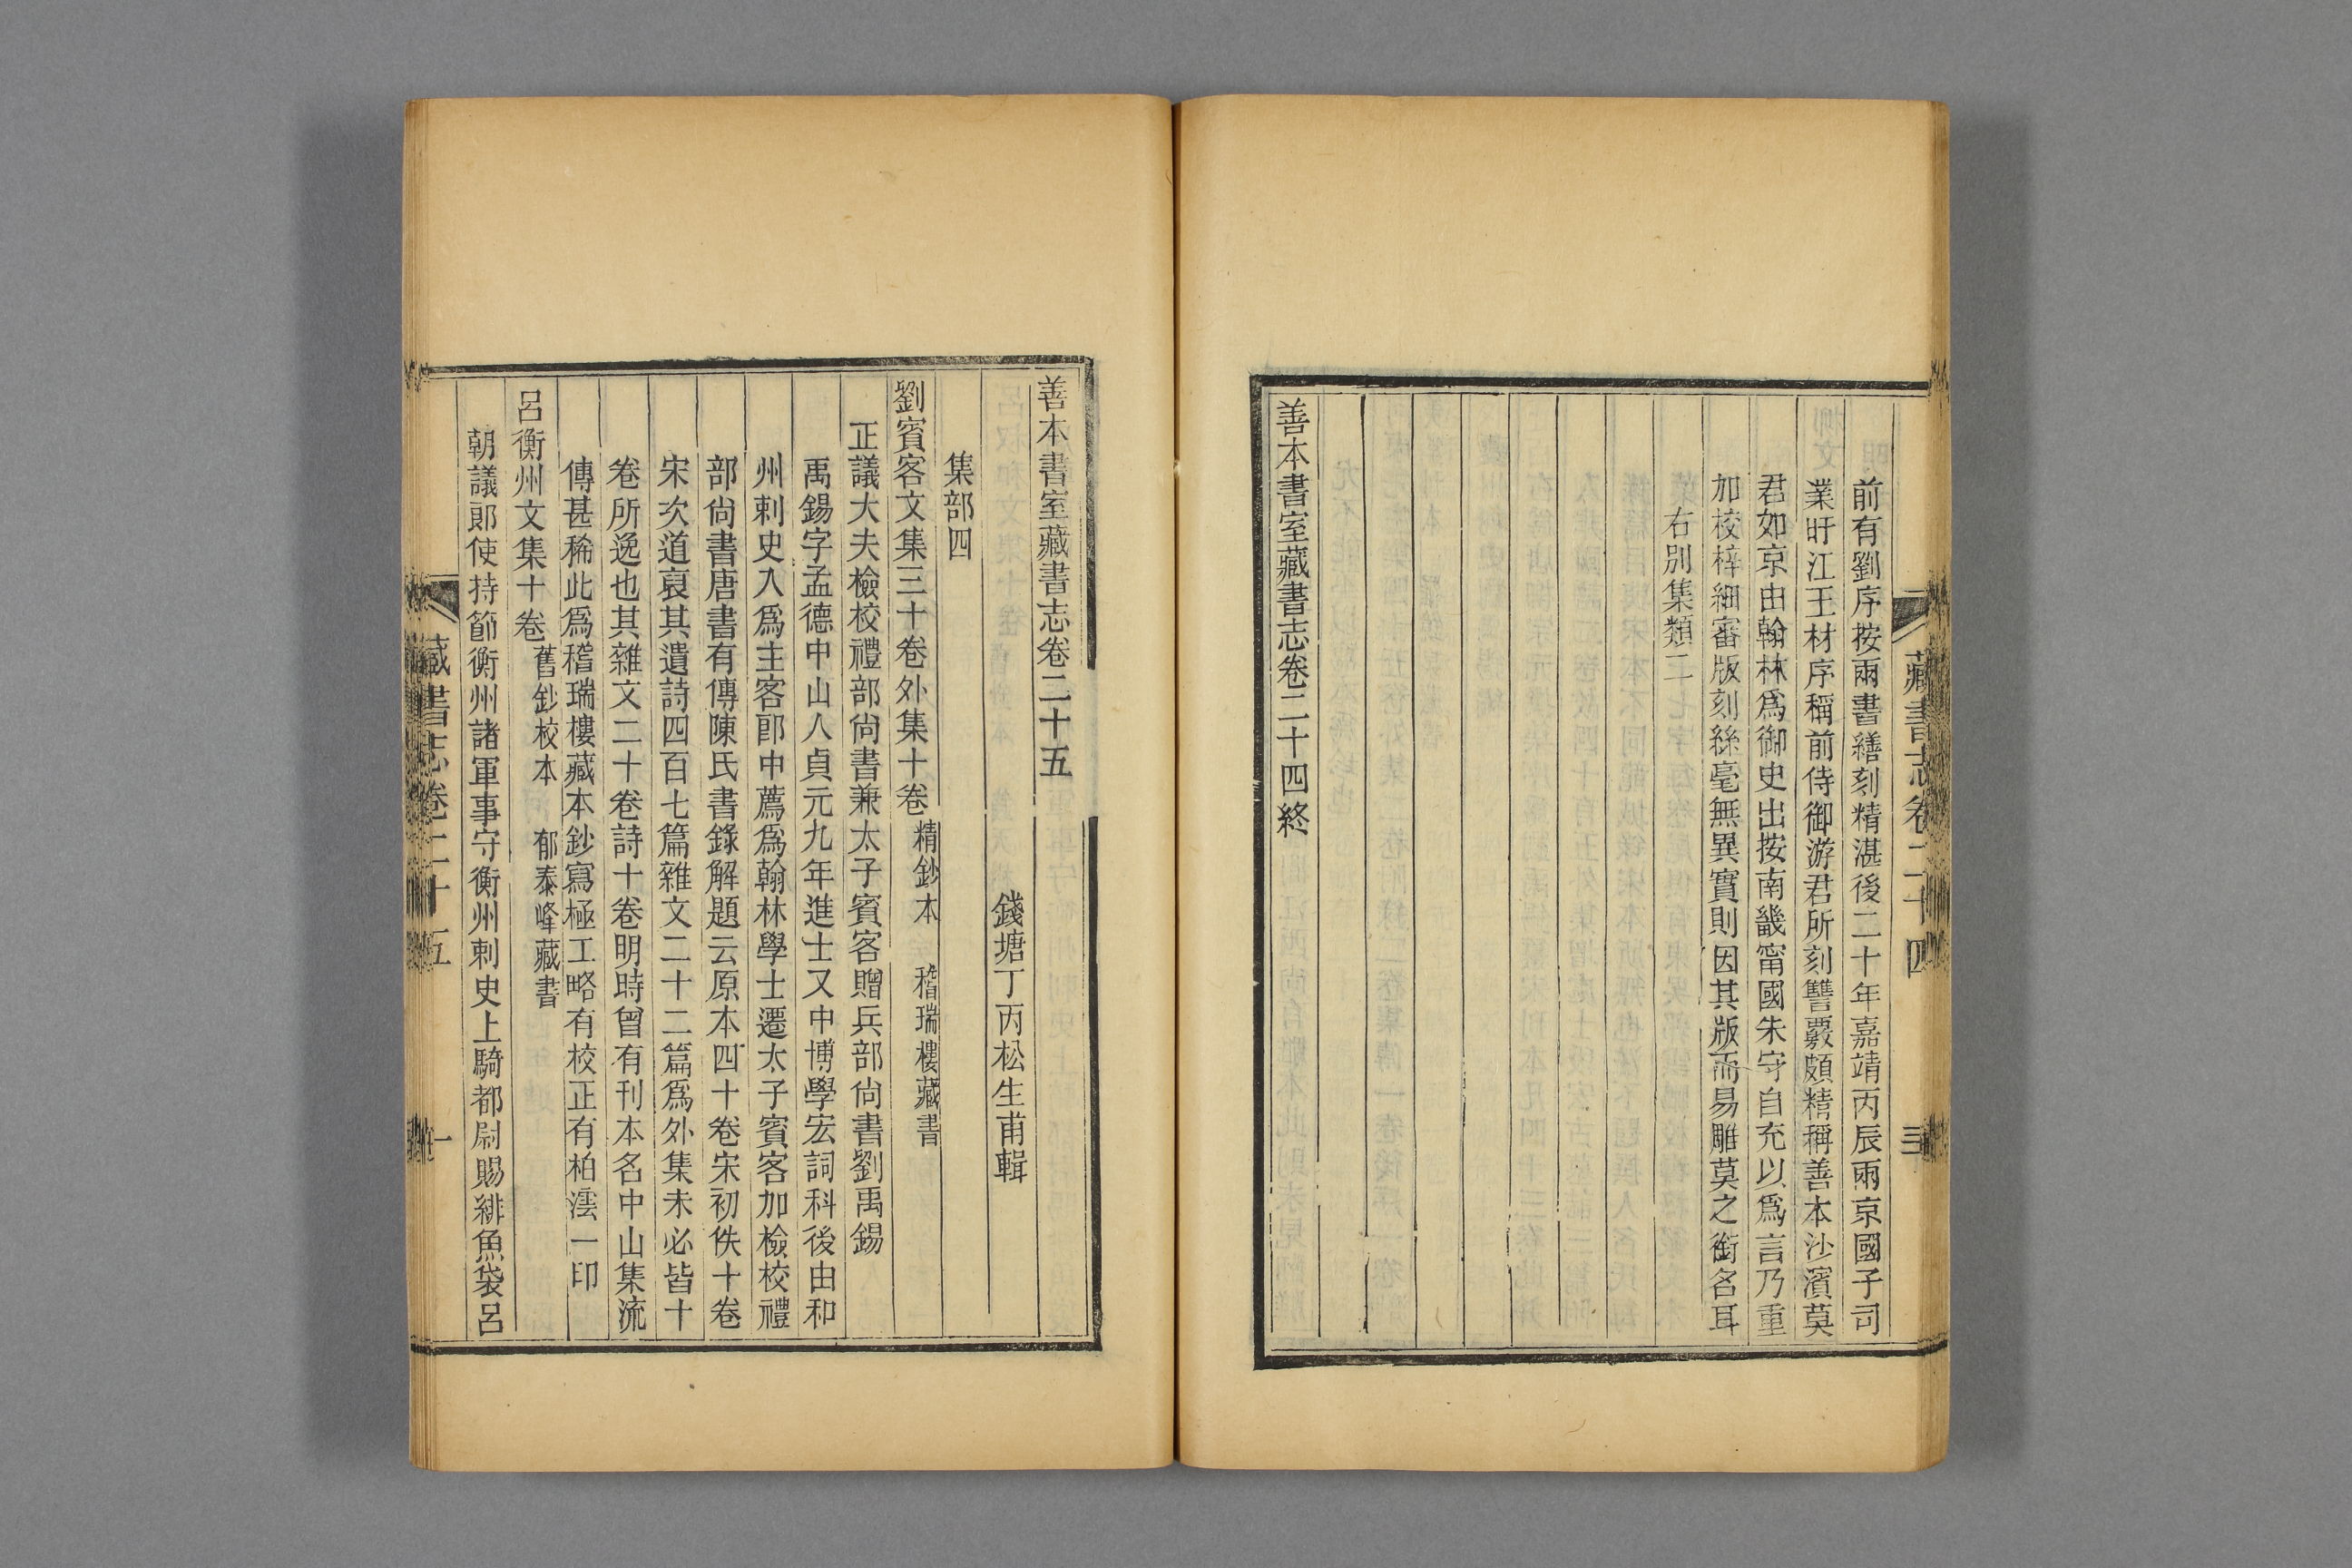 藏書志卷二十四
前有劉序按兩書繕刻精湛後二十年嘉靖丙辰兩京國子司
業盱江王材序稱前侍御游君所刻讐覈頗精稱善本沙濱莫
君如京由翰林爲御史出按南畿甯國朱守自充以爲言乃重
加校梓細審版刻絲毫無異實則因其版而易雕莫之銜名耳
右別集類二
善本書室藏書志卷二十四終
善本書室藏書志卷二十五
錢塘丁丙松生甫輯
集部四
劉賓客文集三十卷外集十卷 精鈔本 稽瑞樓藏書
正議大夫檢校禮部尙書兼太子賓客贈兵部尙書劉禹錫
禹錫字孟德中山人貞元九年進士又中博學宏詞科後由和
州刺史入爲主客郎中薦爲翰林學士遷太子賓客加檢校禮
部尙書唐書有傳陳氏書錄解題云原本四十卷宋初佚十卷
宋次道裒其遺詩四百七篇雜文二十二篇爲外集未必皆十
卷所逸也其雜文二十卷詩十卷明時曾有刊本名中山集流
傳甚稀此爲稽瑞樓藏本鈔寫極工略有校正有柏澐一印
呂衡州文集十卷 舊鈔校本 郁泰峰藏書
朝議郎使持節衡州諸軍事守衡州刺史上騎都尉賜緋魚袋呂
藏書志卷二十五 一